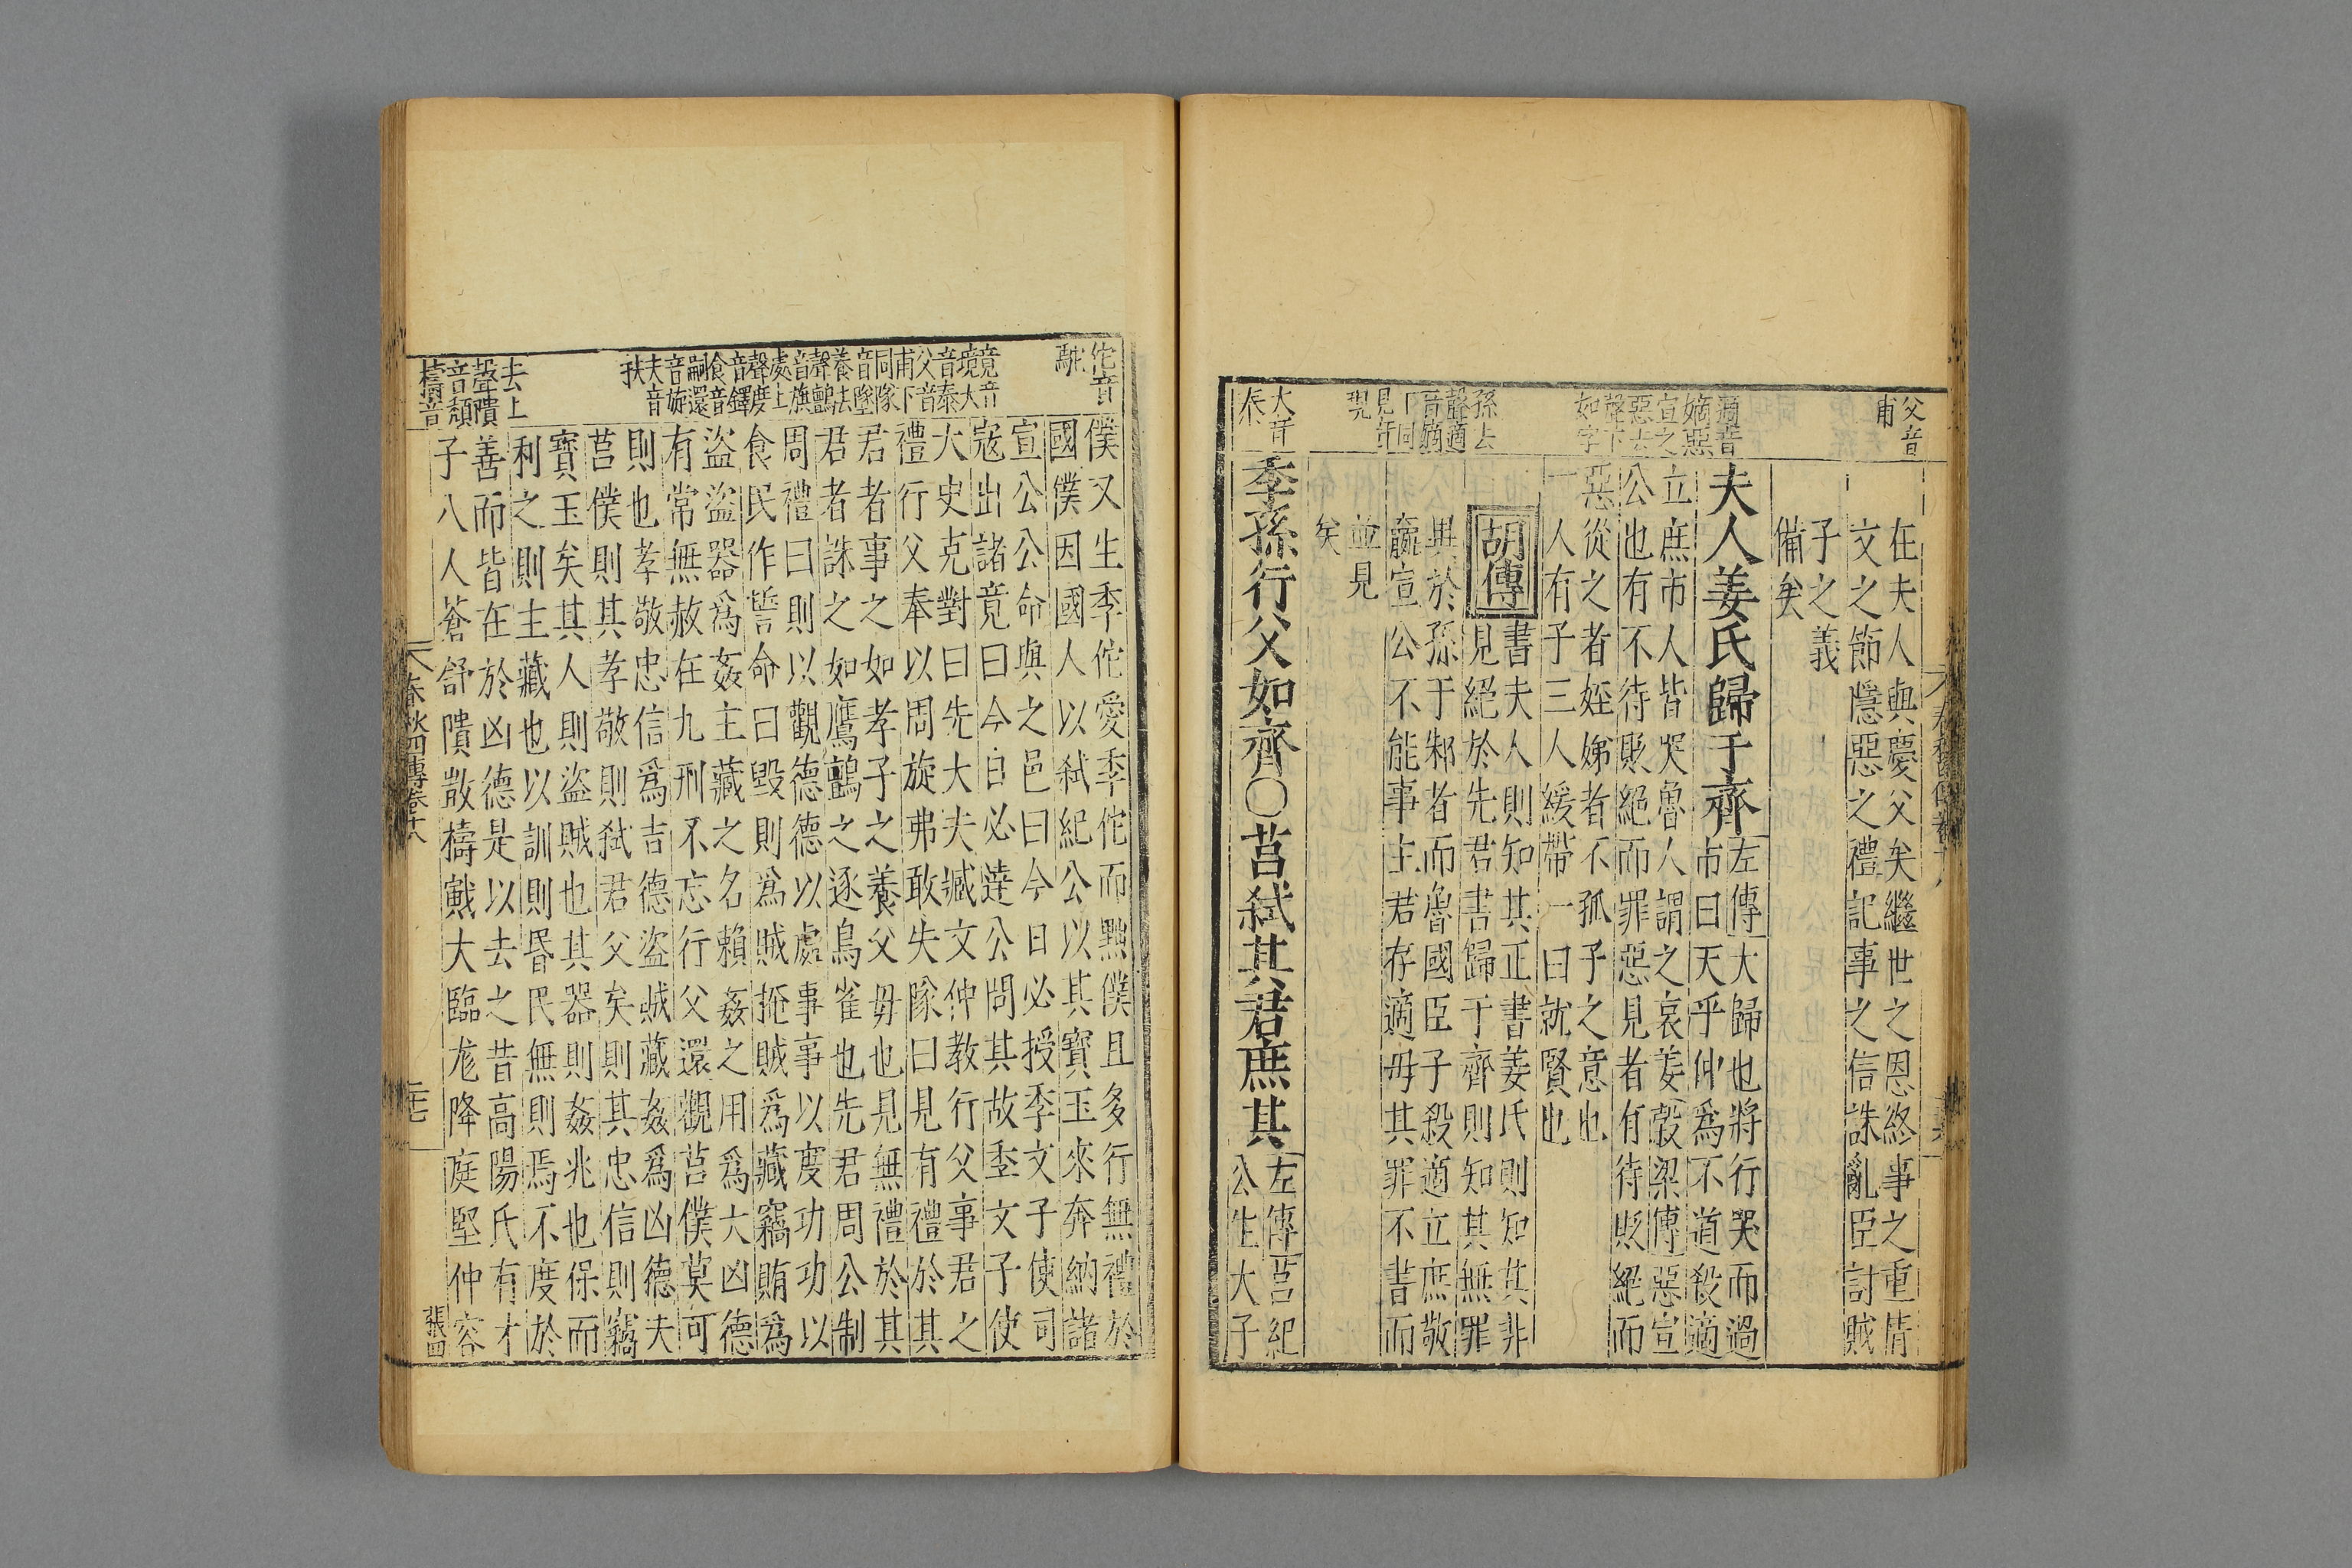 父音
甫
在夫人與慶父矣繼世之恩終事之重情
文之節隱惡之禮記事之信誅亂臣討賊
子之義
備矣
夫人姜氏歸于齊
左傳大歸也將行哭而過
市曰天乎仲爲不道殺適
適音
嫡惡
宣之
惡去
聲下
如字
立庶市人皆哭魯人謂之哀姜穀梁傳惡宣
公也有不待貶絕而罪惡見者有待貶絕而
惡從之者姪娣者不孤子之意也
一人有子三人緩帶一曰就賢也
胡傳
書夫人則知其正書姜氏則知其非
見絕於先君書歸于齊則知其無罪
孫去
聲適
音嫡
下同
見音
現
異於孫于邾者而魯國臣子殺適立庶敬
嬴宣公不能事主君存適母其罪不書而
並見
矣
季孫行父如齊○莒弑其君庶其
左傳莒紀
公生大子
大音
泰
佗音
駝
僕又生季佗愛季佗而黜僕且多行無禮於
國僕因國人以弑紀公以其寶玉來奔納諸
宣公公命與之邑曰今日必授季文子使司
寇出諸竟曰今日必逹公問其故季文子使
大史克對曰先大夫臧文仲教行父事君之
禮行父奉以周旋弗敢失隊曰見有禮於其
君者事之如孝子之養父毋也見無禮於其
君者誅之如鷹鸇之逐鳥雀也先君周公制
周禮曰則以觀德德以處事事以度功功以
食民作誓命曰毀則爲賊掩賊爲藏竊賄爲
盜盜器爲姦主藏之名賴姦之用爲大凶德
有常無赦在九刑不忘行父還觀莒僕莫可
則也孝敬忠信爲吉德盜賊藏姦爲凶德夫
莒僕則其孝敬則弑君父矣則其忠信則竊
寶玉矣其人則盜賊也其器則姦兆也保而
利之則主藏也以訓則昬民無則焉不度於
善而皆在於凶德是以去之昔高陽氏有才
子八人蒼舒隤敳檮戭大臨尨降庭堅仲容
竟音
境大
音泰
父音
甫下
同隊
音墜
養去
聲鸇
音旃
處上
聲度
音鐸
食音
嗣還
音旋
夫音
扶
去上
聲隤
音頹
檮音
春秋四傳卷十八
張四